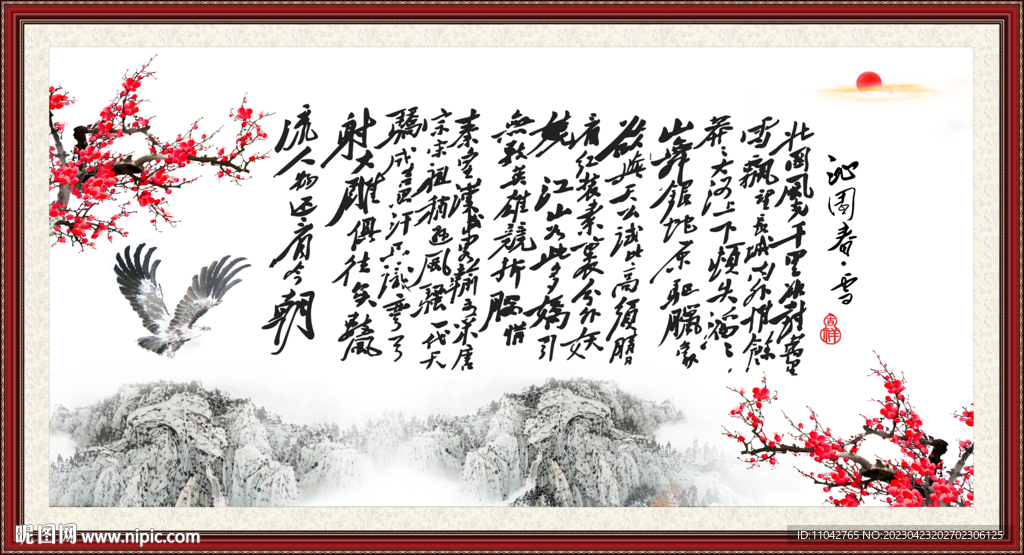 沁園春·雪
北國風光千里冰封萬里
雪飘望長城内外惟餘
莽々大河上下頓失滔々
山舞銀蛇原驰臘象
欲與天公試比高須晴
看红装素裹分外妖
娆江山如此多嬌引
無数英雄競折腰惜
秦皇漢武略輸文采唐
宗宋祖稍遜風騷一代天
驕成吉思汗只識彎弓
射大雕俱往矣数風
流人物还看今朝
吉祥
昵图网 www.nipic.com
ID:11042765 NO:20230423202702306125